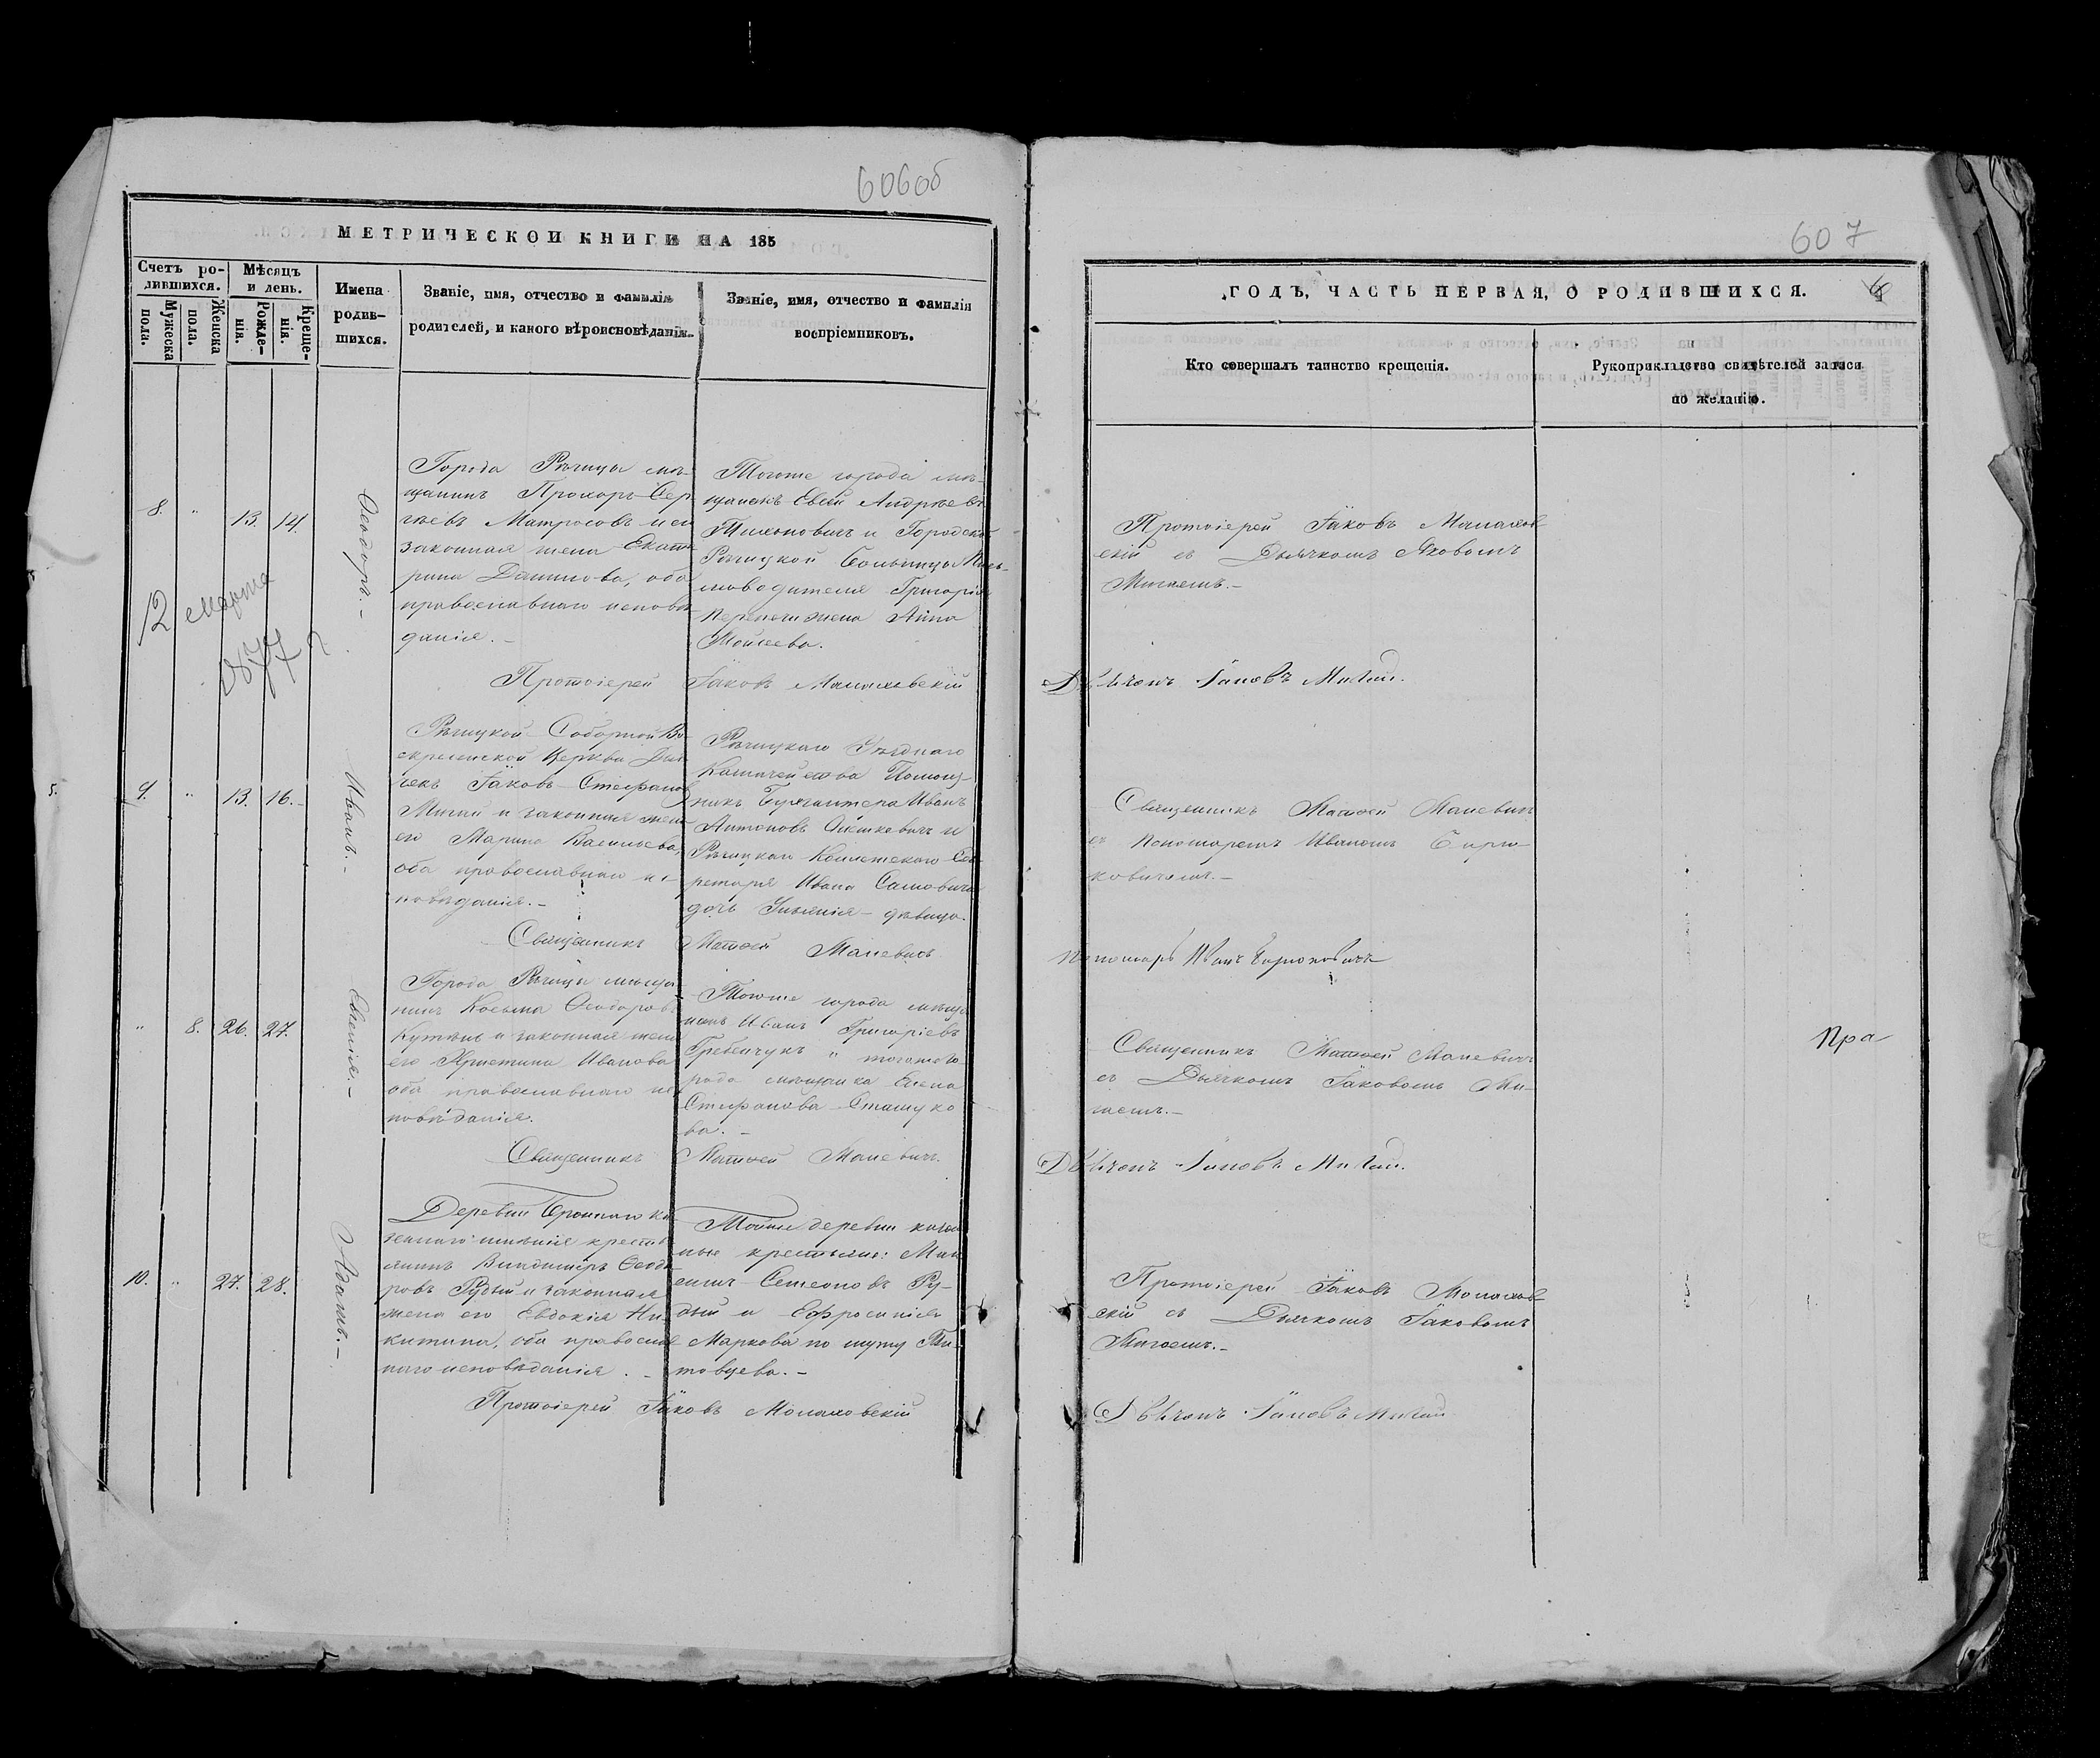 606об
МЕТРИЧЕСКОЙ КНИГИ НА 185
Счетъ ро-
дившихся.
Мѣсяцъ
и день.
Мужеска
пола.
Женска
пола.
Рожде-
нія.
Креще-
нія.
Имена
родив-
шихся.
Званіе, имя, отчество и фамилія
родителей, и какого вѣроисповѣданія.
Званіе, имя, отчество и фамилія
воспріемниковъ.
8. " 13. 14.
Ѳеодоръ.-
Города Рѣчицы мѣ-
щанинъ Прохоръ Сер-
гѣевъ Матросовъ и его
законная жена Екате
рина Данилова, оба
православнаго исповѣ
данія.-
Тогоже города мѣ-
щанинъ Евсей Андреевъ
Тихоновичъ и Городской
Рѣчицкой Больницы Пись-
моводителя Григорія
жена Анна
Моисеева.
Протоіерей Іаковъ Малаховскій
12 марта
1877 г
9. " 13. 16.-
Иванъ.-
Рѣчицкой Соборной Во-
скресенской Церкви Дья
чекъ Іаковъ Стефановъ
Мигай и законная жена
его Марина Васильева,
оба православнаго ис-
повѣданія.-
Рѣчицкаго Уѣзднаго
Казначейства Помощ-
никъ Бухгалтера Иванъ
Антоновъ и
Рѣчицкаго Коллежскаго Сек-
ретаря Ивана Самовича
дочь Ульянія - дѣвица.
Священникъ Матѳей Маневичъ
5.
" 8. 26. 27.
Евгенія.-
Города Рѣчицы мѣща
нинъ Косьма Ѳеодоровъ
и законная жена
его Христина Иванова
оба православнаго ис
повѣданія.
Тогоже города мѣща
нинъ Иванъ Григоріевъ
Гребенчукъ и тогоже го
рода мѣщанка Елена
Стефанова Сташуко
ва.-
Священникъ Матѳей Маневичъ.
10. " 27. 28.
Адамъ.-
Деревни Броннаго ка
зеннаго имѣнія кресть
янинъ Владимиръ Ѳеодо
ровъ Рудый и законная
жена его Евдокія Ни-
китина, оба православ
наго исповѣданія.-
Тойже деревни казен
ные крестьяне: Мак
симъ Семеоновъ Ру-
дый и Ефросинія
Маркова по мужу Ти-
товцева.-
Протоіерей Іаковъ Малаховскій
607
ГОДЪ, ЧАСТЬ ПЕРВАЯ, О РОДИВШИХСЯ.
Кто совершалъ таинство крещенія.
Рукоприкладство свидѣтелей записи
по желанію.
Протоіерей Іаковъ Малахов
скій съ Дьячкомъ Яковомъ
Мигаемъ.-
Дьячокъ Іаковъ Мигай.
Священникъ Матѳей Маневичъ
съ Пономаремъ Иваномъ Бирю
ковичемъ.-
Пономарь Иванъ Бирюковичъ
Священникъ Матѳей Маневичъ
съ Дьячкомъ Іаковомъ Ми-
гаемъ.-
Пра
Дьячокъ Іаковъ Мигай.
Протоіерей Іаковъ Малахов
скій съ Дьячкомъ Іаковомъ
Мигаемъ.-
Дьячокъ Іаковъ Мигай